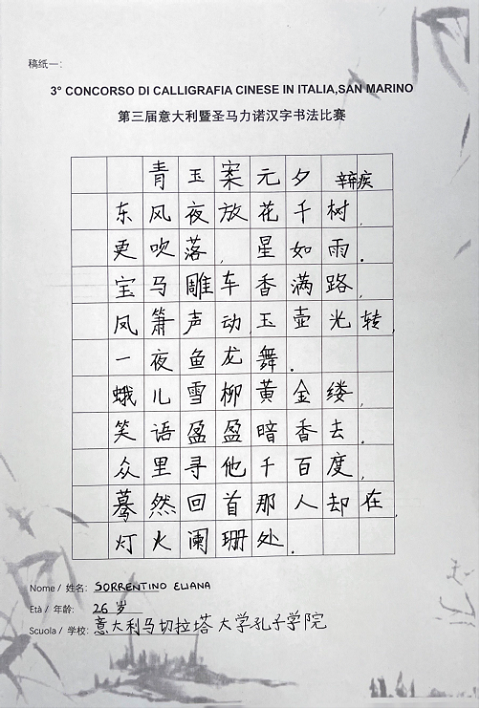 稿纸一:
3° CONCORSO DI CALLIGRAFIA CINESE IN ITALIA,SAN MARINO
第三届意大利暨圣马力诺汉字书法比赛
青玉案 元夕 辛弃疾
东风夜放花千树,
更吹落,星如雨.
宝马雕车香满路,
凤箫声动,玉壶光转,
一夜鱼龙舞.
蛾儿雪柳黄金缕,
笑语盈盈暗香去.
众里寻他千百度,
蓦然回首那人却在,
灯火阑珊处.
Nome / 姓名: SORRENTINO ELIANA
Età / 年龄: 26岁
Scuola / 学校: 意大利马切拉塔大学孔子学院